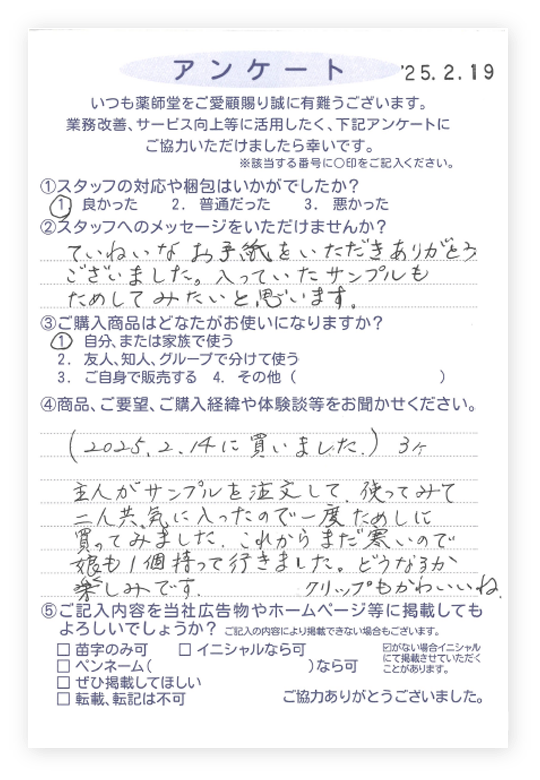 アンケート
'25.2.19
いつも薬師堂をご愛顧賜り誠に有難うございます。
業務改善、サービス向上等に活用したく、下記アンケートに
ご協力いただけましたら幸いです。
※該当する番号に○印をご記入ください。
①スタッフの対応や梱包はいかがでしたか?
1. 良かった 2. 普通だった 3. 悪かった
②スタッフへのメッセージをいただけませんか?
ていねいな お手紙をいただきありがとう
ございました。入っていたサンプルも
ためしてみたいと思います。
③ご購入商品はどなたがお使いになりますか?
1. 自分、または家族で使う
2. 友人、知人、グループで分けて使う
3. ご自身で販売する 4. その他 ( )
④商品、ご要望、ご購入経緯や体験談等をお聞かせください。
(2025.2.14に買いました.) 3ヶ
主人がサンプルを注文して、使ってみて
二人共、気に入ったので一度ためしに
買ってみました。これからまだ寒いので
娘も1個持って行きました。どうなるか
楽しみです. クリップもかわいいね.
⑤ご記入内容を当社広告物やホームページ等に掲載しても
よろしいでしょうか? ご記入の内容により掲載できない場合もございます。
□ 苗字のみ可 □ イニシャルなら可
□ ペンネーム( )なら可
□ ぜひ掲載してほしい
□ 転載、転記は不可
☑がない場合イニシャル
にて掲載させていただく
ことがあります。
ご協力ありがとうございました。